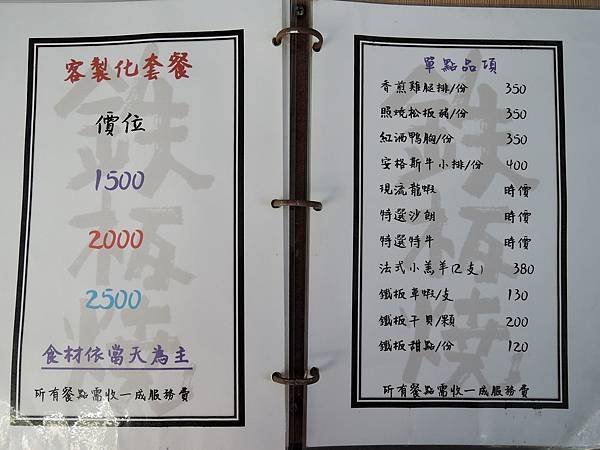 客製化套餐
價位
1500
2000
2500
食材依當天為主
所有餐點需收一成服務費
單點品項
香煎雞腿排/份 350
照燒松板豬/份 350
紅酒鴨胸/份 350
安格斯牛小排/份 400
現流龍蝦 時價
特選沙朗 時價
特選特牛 時價
法式小羔羊(2支) 380
鐵板草蝦/支 130
鐵板干貝/顆 200
鐵板甜點/份 120
所有餐點需收一成服務費
鉄板燒
鉄板燒